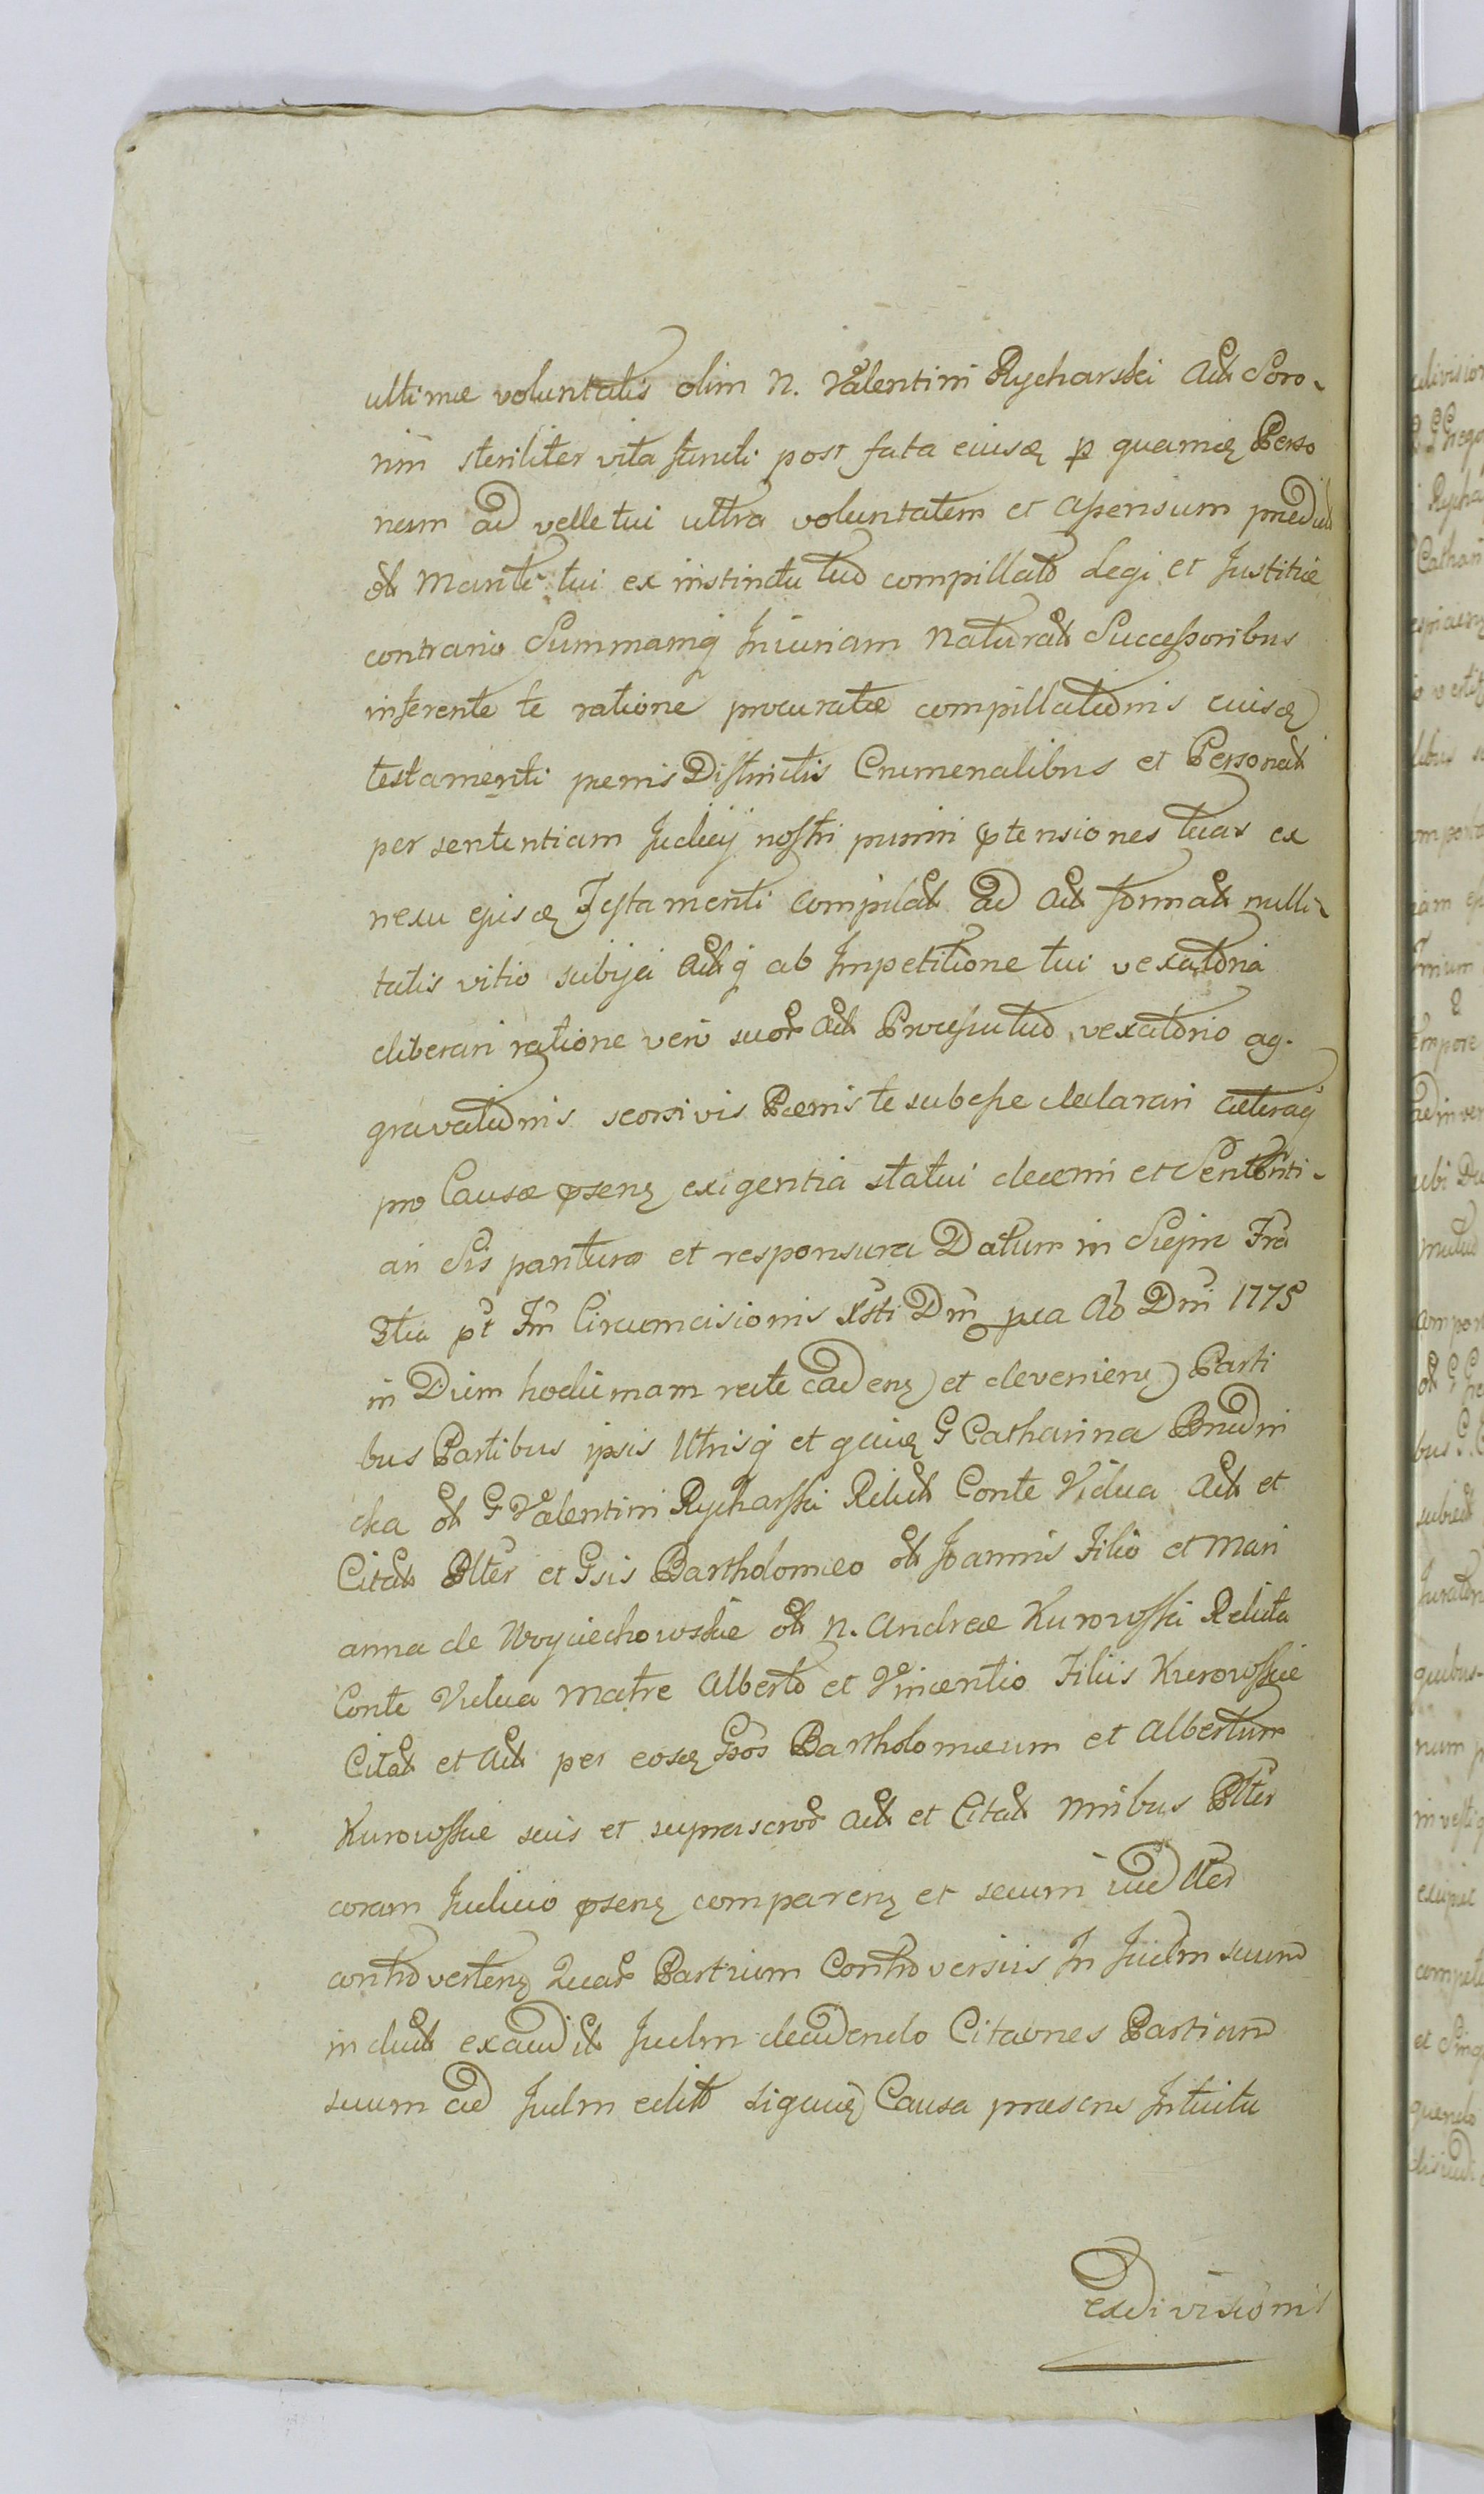 ultimæ voluntatis olim N. Valentini Rycharski Act Soro-
rini steriliter vita functi post fata eiusq p quamcq Perso
nam ad velle tui ultra voluntatem et assensum præd
ol Mariti tui ex instinctu tuo compillato Legi et Justitiæ
contrario Summamq Iniuriam Naturat Successoribus
inferente te ratione procuratæ compillationis eiusq
testamenti pœnis Districtis Crumenalibus et Personat
per sententiam Judicij nostri puniri ptensiones tuas ex
nexu ejusq Testamenti compilat ad Act format nulli-
tatis vitio subijci Actq ab Impetitione tui vexatoria
liberari ratione vero suor Act Processu tuo vexatorio ag-
gravationis seorsivis Pœnis te subesse declarari cæteraq
pro Causæ psenq exigentia statui decerni et Sententi-
ari Sis paritura et responsura Datum in Siejm Fra
3tia pt Fm Circumcisionis Xsti Dni pxa Ao Dni 1775
in Diem hodiernam recte cadenq et devenienq Parti
bus Partibus ipsis Utrisq et qcuiq G Catharina Brudni
cka ol G Valentini Rycharski Relict Conte Vidua Act et
Citat Plter et Gsis Bartholomæo ol Joannis Filio et Mari
anna de Woyciechowskie ol N. Andreæ Kurowski Relicta
Conte Vidua Matre Alberto et Vincentio Filiis Kurowskie
Citat et Act per eosq Gsos Bartholomæum et Albertum
Kurowskie suis et suprascror Act et Citat nnibus Plter
coram Judicio psenq comparenq et secum iudlter
controvertenq Quar Partium Controversiis In Judm suum
induct exaudit Judm decidendo Citaones Partium
suum ad Judm edit siquiq Causa præsens Intuitu
exdivisionis